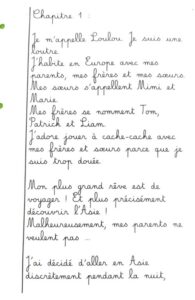 Chapitre 1 :
Je m'appelle Loulou. Je suis une
loutre.
J'habite en Europe avec mes
parents, mes frères et mes sœurs.
Mes sœurs s'appellent Mimi et
Marie.
Mes frères se nomment Tom,
Patrick et Liam.
J'adore jouer à cache-cache avec
mes frères et sœurs parce que je
suis trop douée.
Mon plus grand rêve est de
voyager ! Et plus précisément
découvrir l'Asie !
Malheureusement, mes parents ne
veulent pas ...
J'ai décidé d'aller en Asie
discrètement pendant la nuit,